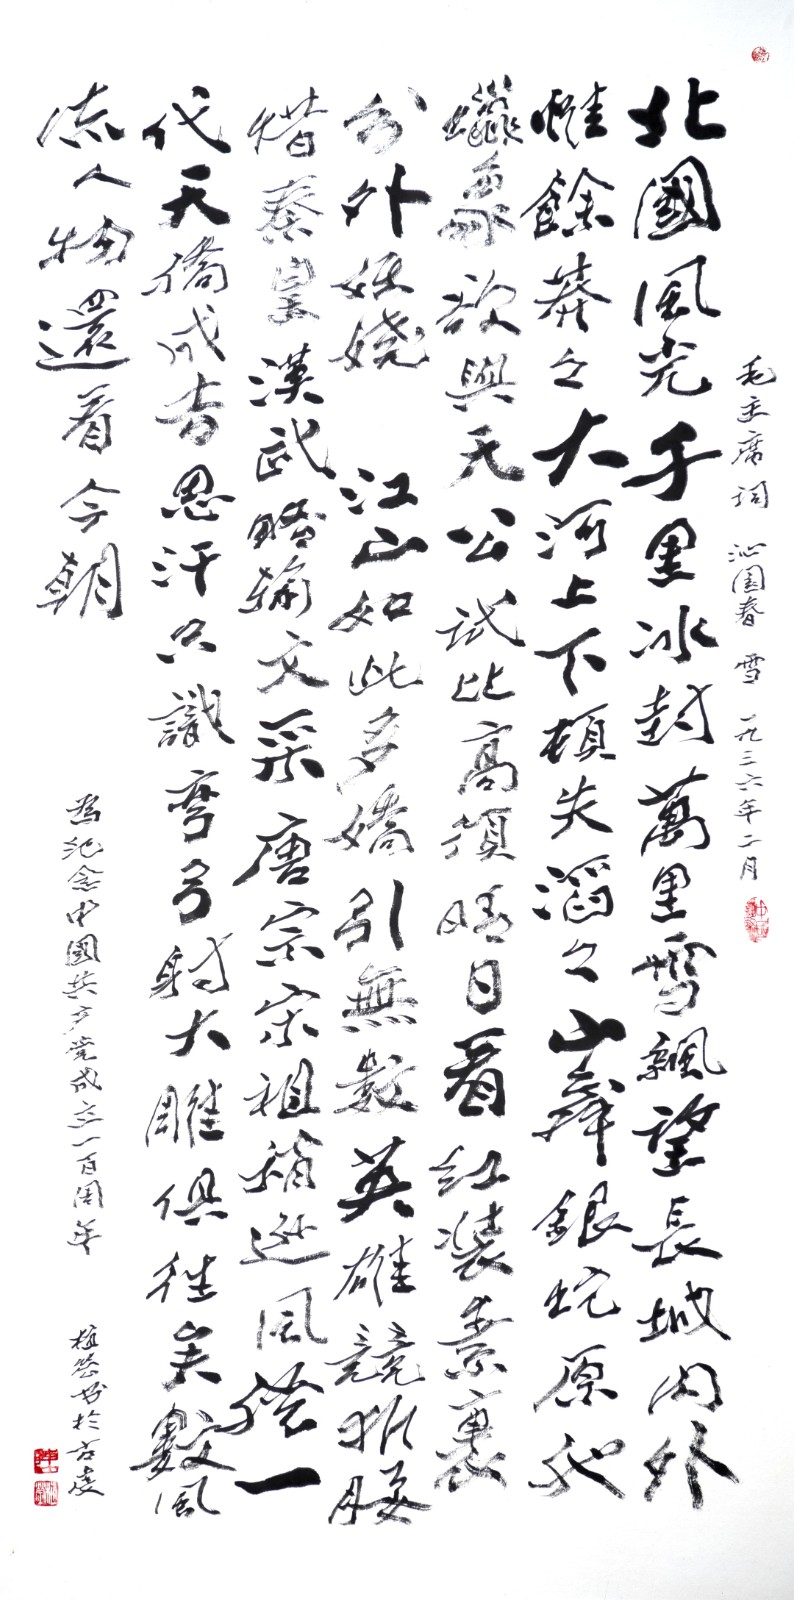 毛主席词 沁園春 雪 一九三六年二月
北國風光千里冰封萬里雪飄望長城内外
惟餘莽々大河上下頓失滔々山舞銀蛇原馳
蠟象欲與天公試比高須晴日看紅裝素裹
分外妖嬈 江山如此多嬌引無數英雄競折腰
惜秦皇漢武略輸文采唐宗宋祖稍遜風騷一
代天驕成吉思汗只識彎弓射大雕俱往矣數風
流人物還看今朝
為纪念中國共产党成立一百周年 书於古